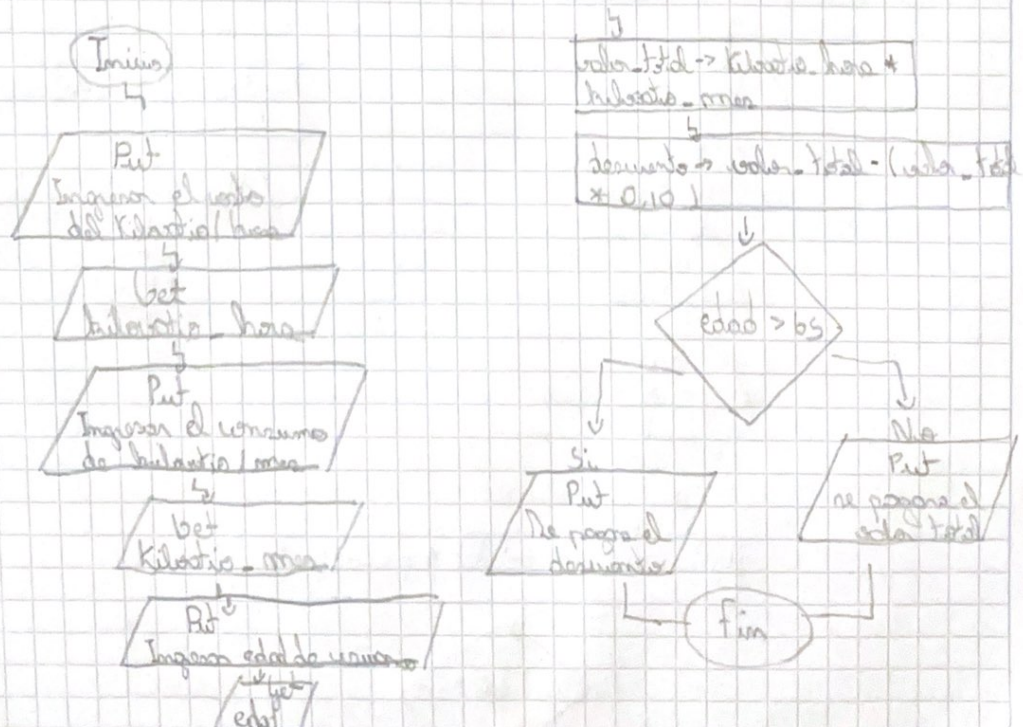 Inicio
Put
Ingresar el costo
del Kilovatio/hora
Get
kilovatio_hora
Put
Ingresar el consumo
de kilovatio/mes
Get
Kilovatio_mes
Put
Ingresar edad de usuario
Get
edad
valor_total -> Kilovatio_hora *
kilovatio_mes
descuento -> valor_total - (valor_total
* 0,10)
edad > 65
Si
Put
Se pagara el
descuento
No
Put
se pagara el
valor total
Fin